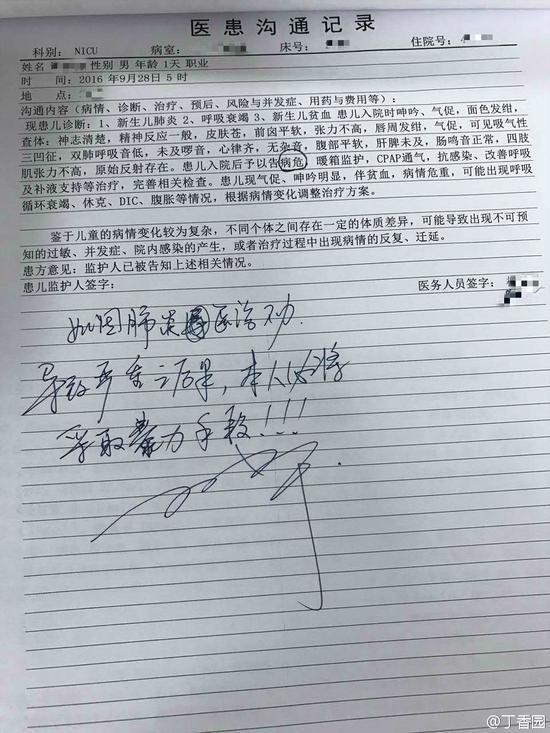 医患沟通记录
科别： NICU 病室： 床号： 住院号：
姓名 性别 男 年龄 1天 职业
时 间：2016 年9月28日 5 时
地 点：
沟通内容（病情、诊断、治疗、预后、风险与并发症、用药与费用等）：
现患儿诊断：1、新生儿肺炎 2、呼吸衰竭 3、新生儿贫血 患儿入院时呻吟、气促，面色发绀，
查体：神志清楚，精神反应一般，皮肤苍，前囟平软，张力不高，唇周发绀，气促，可见吸气性
三凹征，双肺呼吸音低，未及啰音，心律齐，无杂音，腹部平软，肝脾未及，肠鸣音正常，四肢
肌张力不高，原始反射存在。患儿入院后予以告病危，暖箱监护，CPAP通气，抗感染、改善呼吸
及补液支持等治疗，完善相关检查。患儿现气促、呻吟明显，伴贫血，病情危重，可能出现呼吸
循环衰竭、休克、DIC、腹胀等情况，根据病情变化调整治疗方案。
鉴于儿童的病情变化较为复杂，不同个体之间存在一定的体质差异，可能导致出现不可预
知的过敏、并发症、院内感染的产生，或者治疗过程中出现病情的反复、迁延。
患方意见：监护人已被告知上述相关情况。
患儿监护人签字： 医务人员签字：
如因肺炎 医治不力.
导致严重之后果，本人必将
采取暴力手段！！！
@丁香园